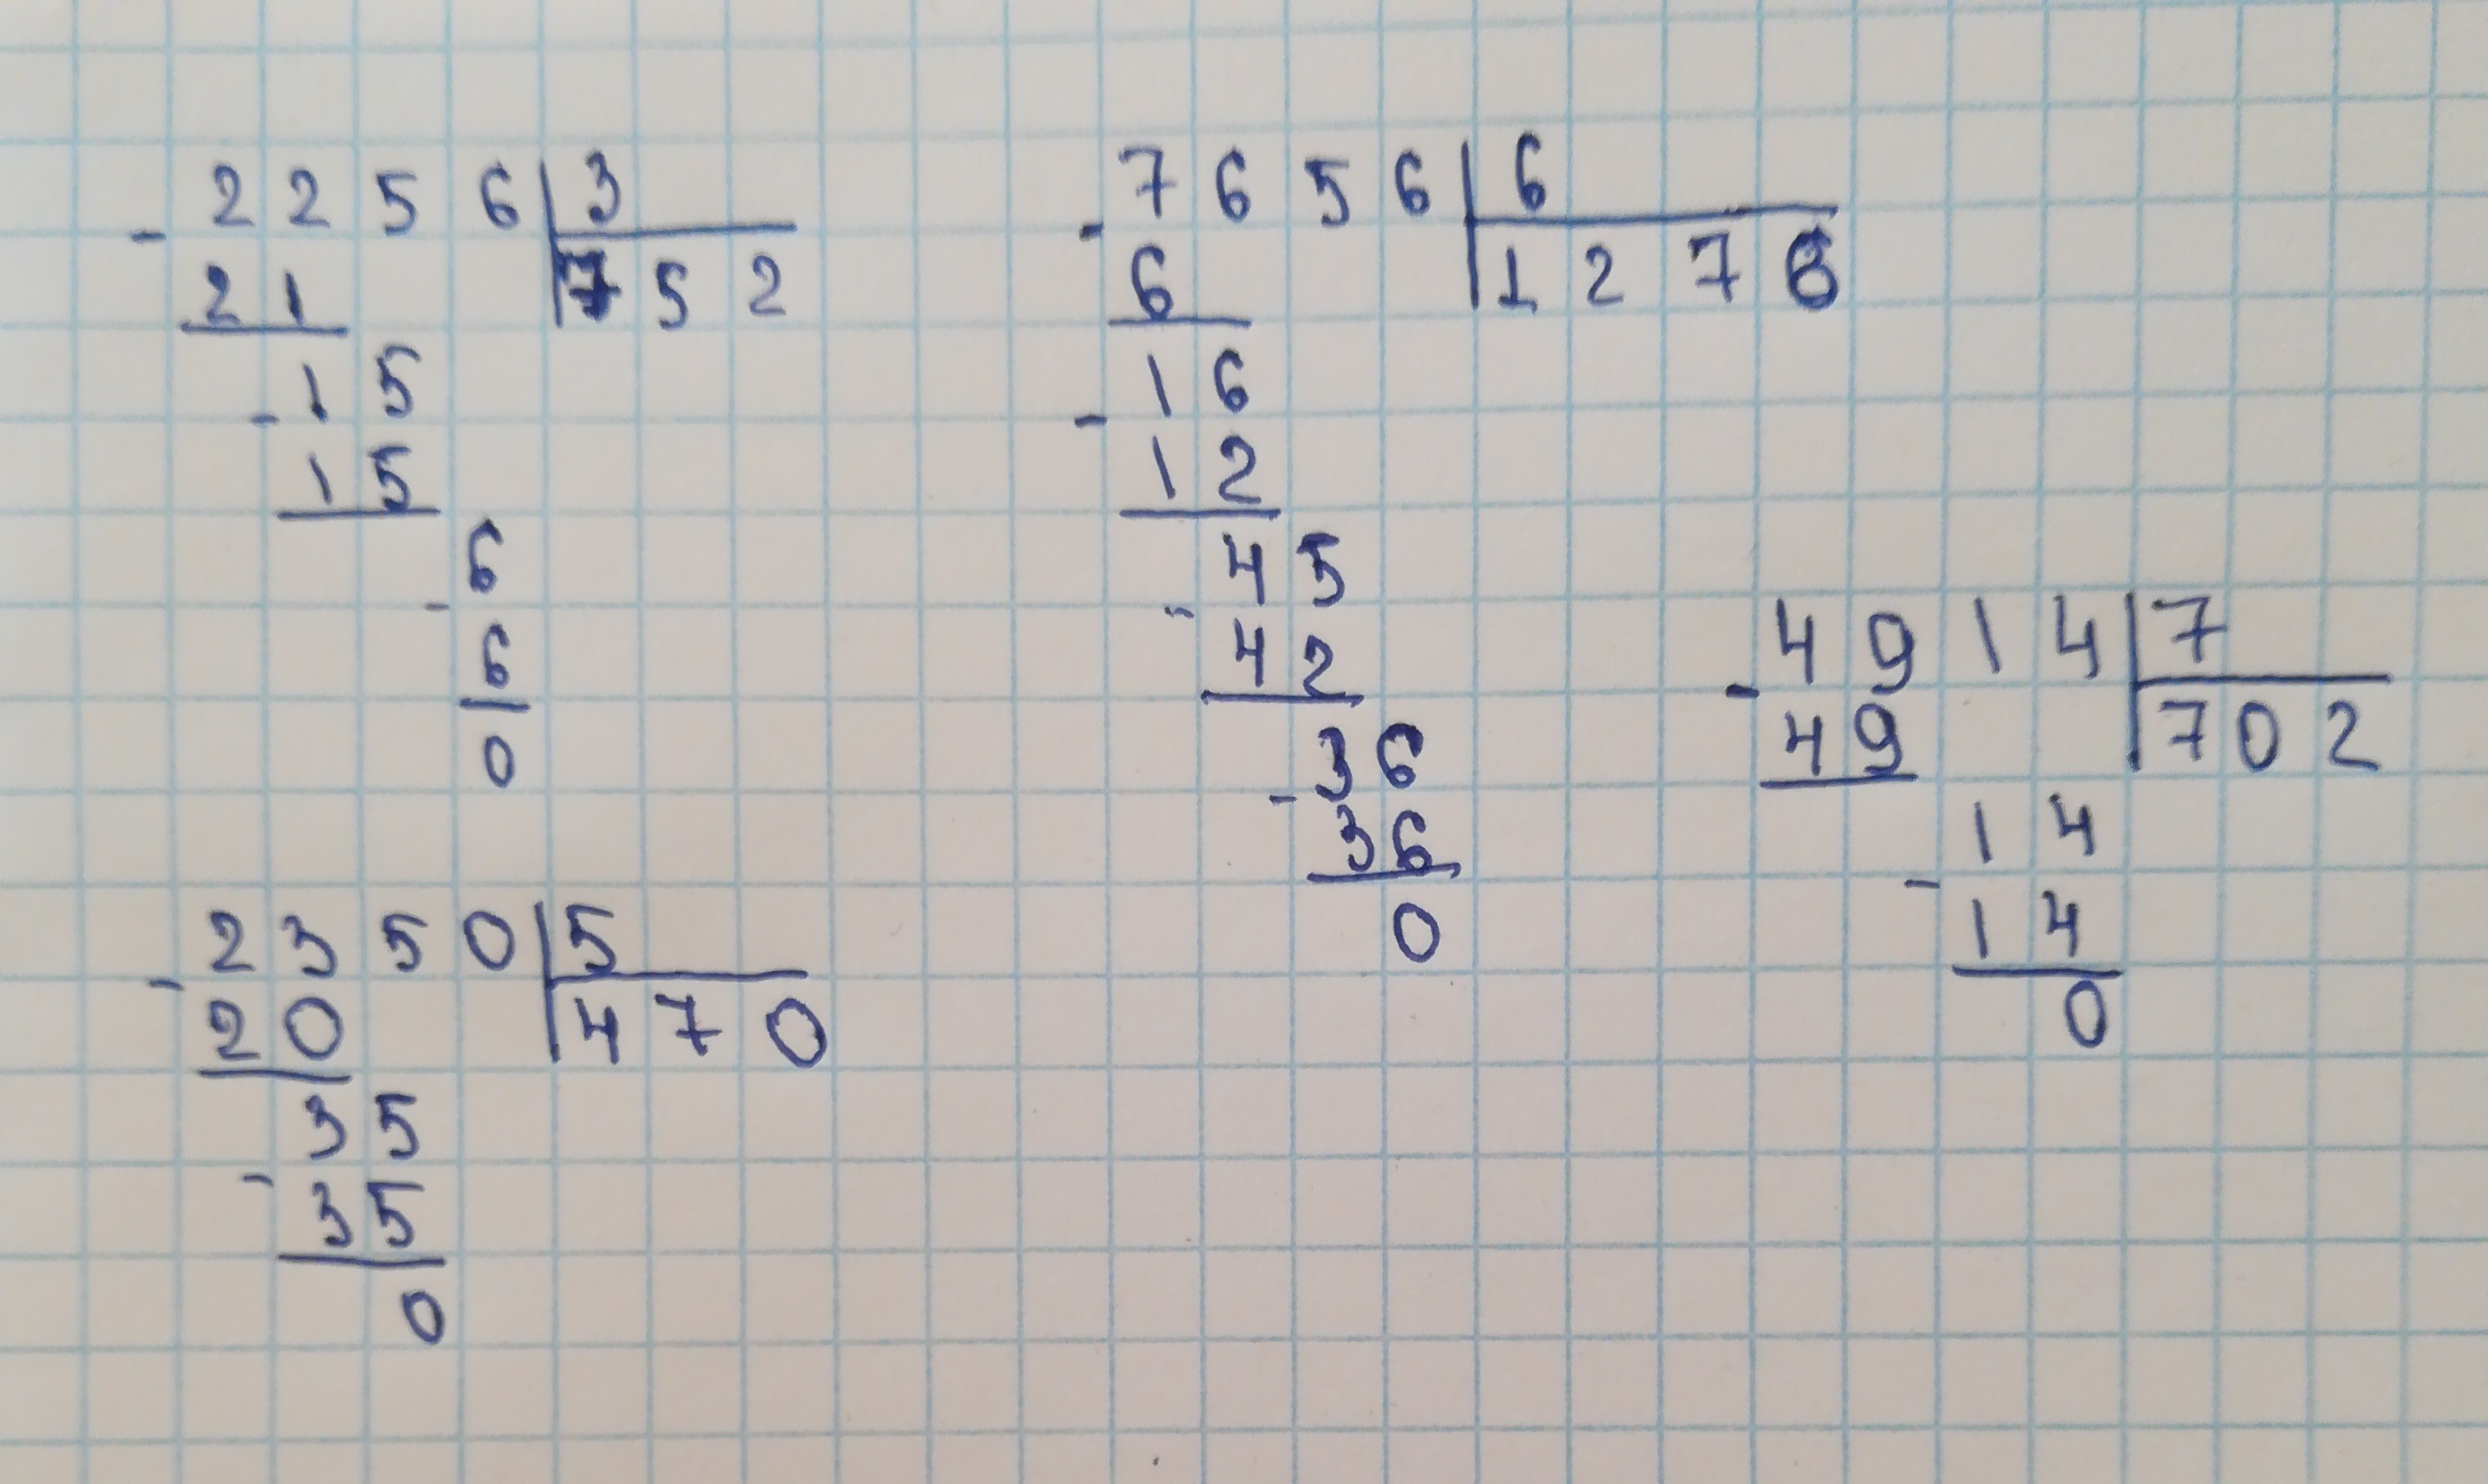 - 2256 | 3
21 | 752
- 15
15
- 6
6
0
- 7656 | 6
6 | 1276
- 16
12
- 45
42
- 36
36
0
- 4914 | 7
49 | 702
- 14
14
0
- 2350 | 5
20 | 470
- 35
35
0